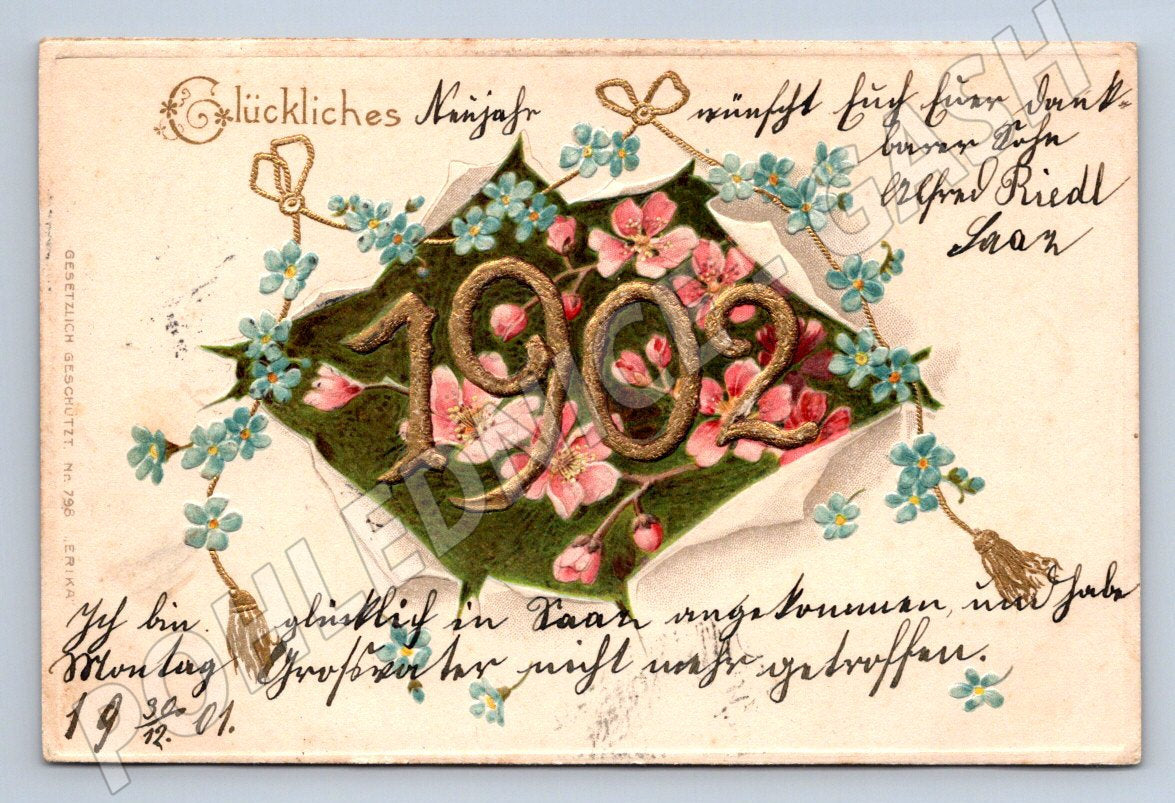 Glückliches Neujahr wünscht Euch Euer dank-
barer Sohn
Alfred Riedl
Saaz
1902
GESETZLICH GESCHÜTZT. Nr. 796 „ERIKA“
Ich bin glücklich in Saaz angekommen, und habe
Montag Grossvater nicht mehr getroffen.
19 30./12. 01.
POHLEDNICE CASH